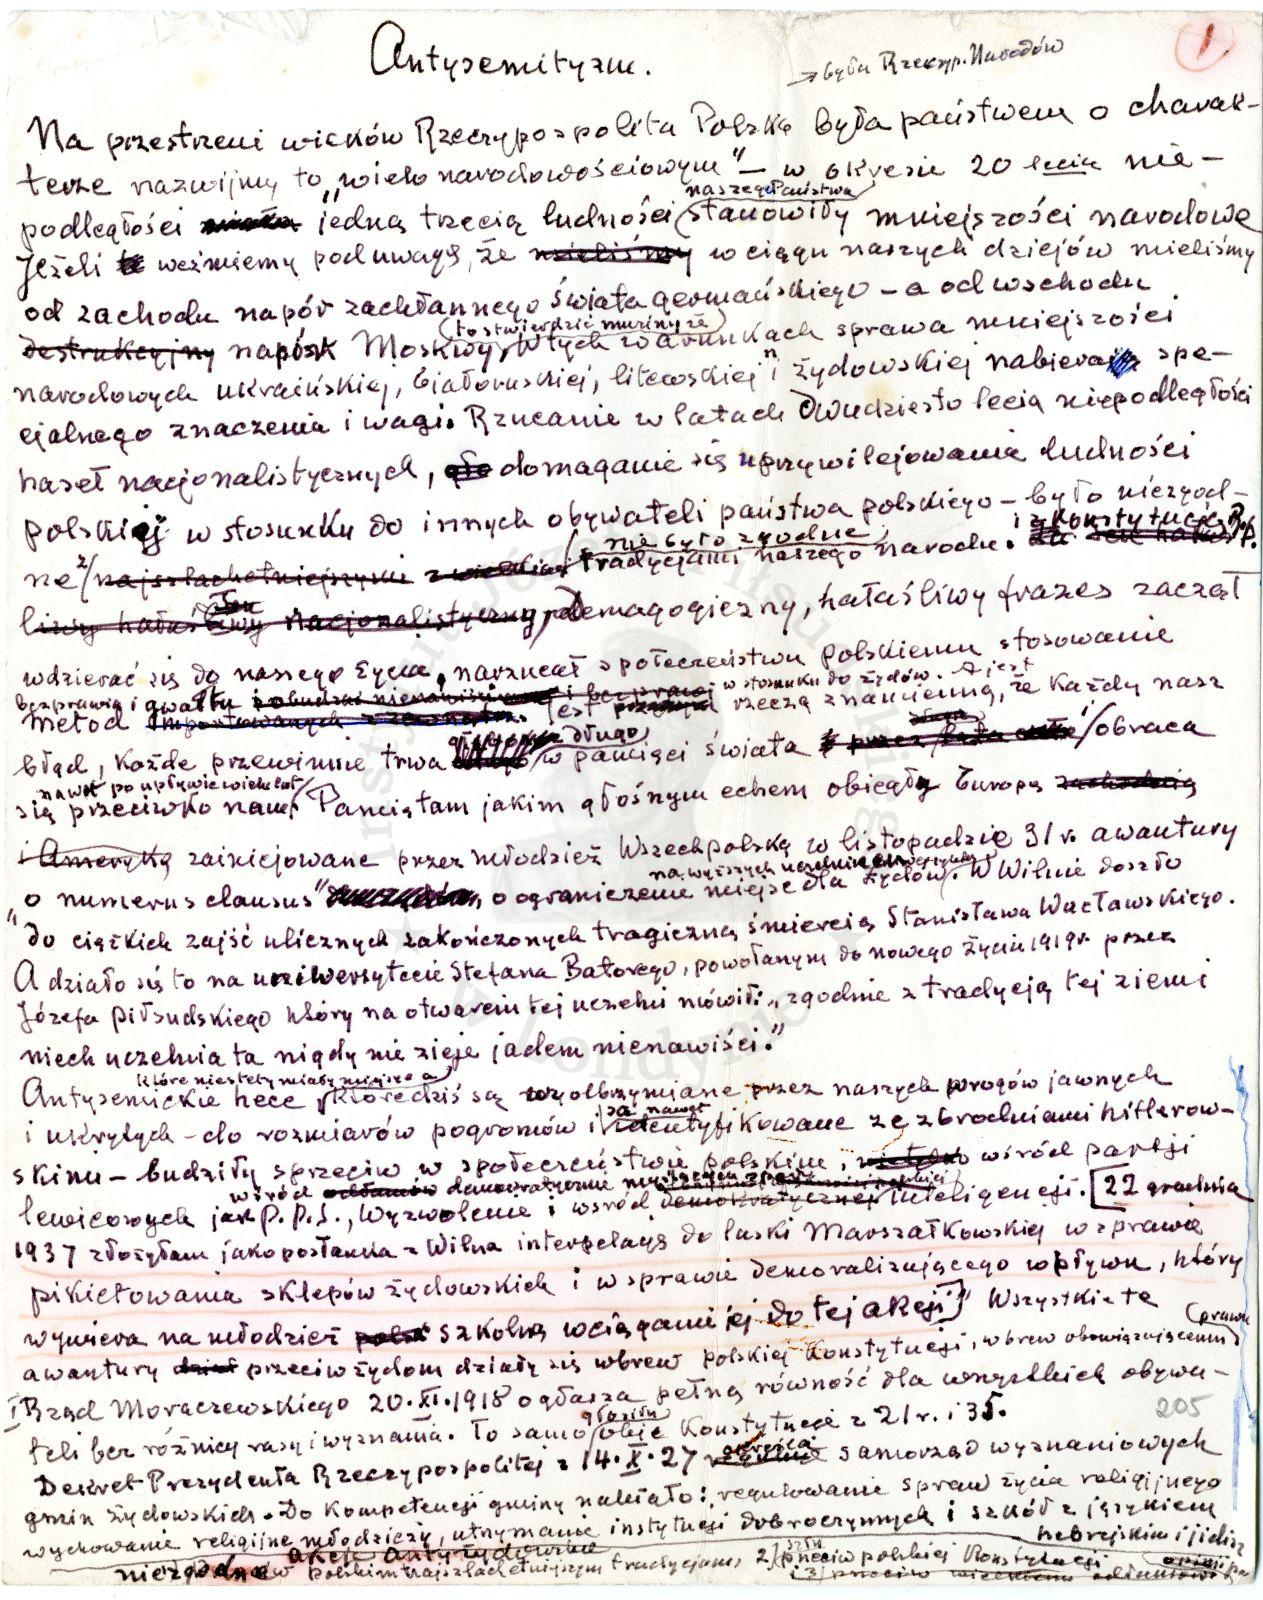 Antysemityzm.
→ była Rzeczyp. Narodów
1
Na przestrzeni wieków Rzeczypospolita Polska była państwem o charak-
terze nazwijmy to "wielonarodowościowym" – w okresie 20 lecia nie-
naszego Państwa
podległości jedną trzecią ludności stanowiły mniejszości narodowe
Jeżeli weźmiemy pod uwagę, że mieliśmy w ciągu naszych dziejów mieliśmy
od zachodu napór zachłannego świata germańskiego – a od wschodu
(to stwierdzić musimy że)
destrukcyjny napór Moskwy, w tych warunkach sprawa mniejszości
narodowych ukraińskiej, białoruskiej, litewskiej i żydowskiej nabiera spe-
cjalnego znaczenia i wagi. Rzucanie w latach dwudziestolecia niepodległości
haseł nacjonalistycznych, domaganie się uprzywilejowania ludności
polskiej w stosunku do innych obywateli państwa polskiego – było niezgod-
nie było zgodne
i z Konstytucją R.P.
ne z najszlachetniejszymi tradycjami naszego narodu.
liwy hałaśliwy nacjonalistyczny, demagogiczny, hałaśliwy frazes zaczął
wdzierać się do naszego życia, narzucał społeczeństwu polskiemu stosowanie
bezprawia i gwałtu w stosunku do żydów. A jest
metod importowanych jest rzeczą znamienną, że każdy nasz
długo
błąd, każde przewinienie trwa w pamięci świata obraca
nawet po upływie wielu lat
się przeciwko nam. Pamiętam jakim głośnym echem obiegły Europę zachodnią
i Amerykę zainicjowane przez młodzież Wszechpolską w listopadzie 31 r. awantury
na wyższych uczelniach
o "numerus clausus" o ograniczenie miejsc dla żydów. W Wilnie doszło
do ciężkich zajść ulicznych zakończonych tragiczną śmiercią Stanisława Wacławskiego.
A działo się to na uniwersytecie Stefana Batorego, powołanym do nowego życia 1919 r. przez
Józefa Piłsudskiego który na otwarciu tej uczelni mówił: "zgodnie z tradycją tej ziemi
niech uczelnia ta nigdy nie zieje jadem nienawiści."
które niestety miały miejsce a
Antysemickie hece które dziś są wyolbrzymiane przez naszych wrogów jawnych
są nawet
i ukrytych – do rozmiarów pogromów i identyfikowane ze zbrodniami hitlerow-
skimi – budziły sprzeciw w społeczeństwie polskim, wśród partji
wśród demokratycznie myślących
lewicowych jak P.P.S., Wyzwolenie i wśród demokratycznej inteligencji. [22 grudnia
1937 złożyłam jako posłanka z Wilna interpelację do laski Marszałkowskiej w sprawie
pikietowania sklepów żydowskich i w sprawie demoralizującego wpływu, który
wywiera na młodzież szkolną wciąganie jej do tej akcji] Wszystkie te
prawu
awantury przeciw żydom działy się wbrew polskiej Konstytucji, wbrew obowiązującemu
I Rząd Moraczewskiego 20.XI.1918 ogłasza pełną równość dla wszystkich obywa-
205
głosiły
teli bez różnicy rasy i wyznania. To samo obie Konstytucje z 21 r. i 35.
określa
Dekret Prezydenta Rzeczypospolitej z 14.X.27 samorząd wyznaniowych
gmin żydowskich. Do kompetencji gminy należało: regulowanie spraw życia religijnego
wychowanie religijne młodzieży, utrzymanie instytucji dobroczynnych i szkół z językiem
hebrajskim i jidisz
akcje antyżydowskie
niezgodne w polskim najszlachetniejszym tradycjam, 2) przeciw polskiej Konstytucji